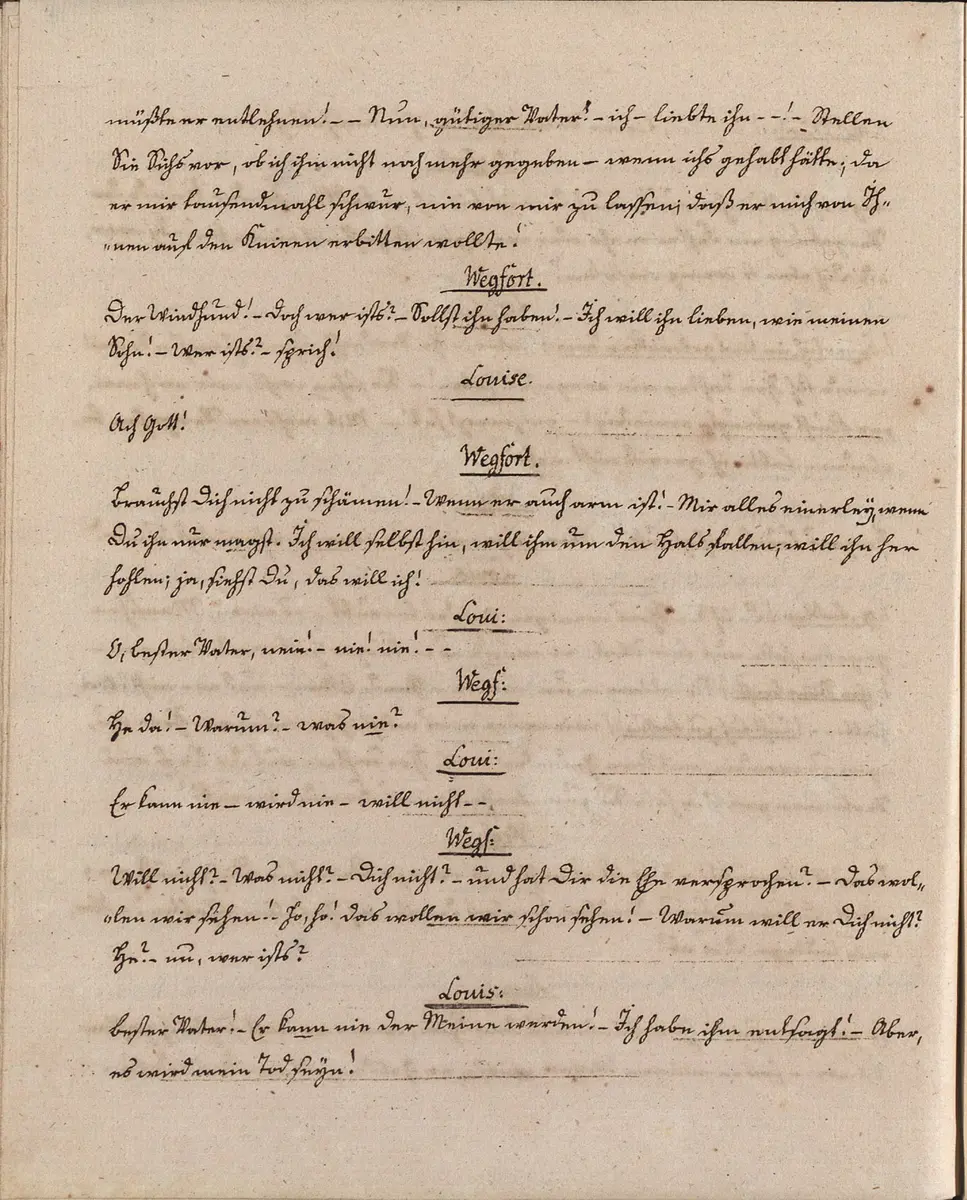 müßte er entlehnen! – – Nun, gütiger Vater! – ich – liebte ihn – –! – Stellen
Sie Sichs vor, ob ich ihm nicht noch mehr gegeben – wenn ichs gehabt hätte; da
er mir tausendmahl schwur, nie von mir zu lassen; daß er mich von Ih=
=nen auf den Knieen erbitten wollte!
Wegfort.
Der Windhund! – Doch wer ists? – Sollst ihn haben! – Ich will ihn lieben, wie meinen
Sohn! – Wer ists? – sprich!
Louise.
Ach Gott!
Wegfort.
Brauchst Dich nicht zu schämen! – Wenn er auch arm ist! – Mir alles einerley, wenn
Du ihn nur magst. Ich will selbst hin, will ihm um den Hals fallen; will ihn her
hohlen; ja, siehst Du, das will ich!
Loui:
O, bester Vater, nein! – nie! nie! – –
Wegf:
He da! – Warum? – was nie?
Loui:
Er kann nie – wird nie – will nicht – –
Wegf:
Will nicht? – Was nicht? – Dich nicht? – und hat Dir die Ehe versprochen? – Das wol=
=len wir sehen! – Ho, ho! das wollen wir schon sehen! – Warum will er Dich nicht?
He? – nu, wer ists?
Louis:
Bester Vater! – Er kann nie der Meine werden! – Ich habe ihm entsagt! – Aber,
es wird mein Tod seyn!